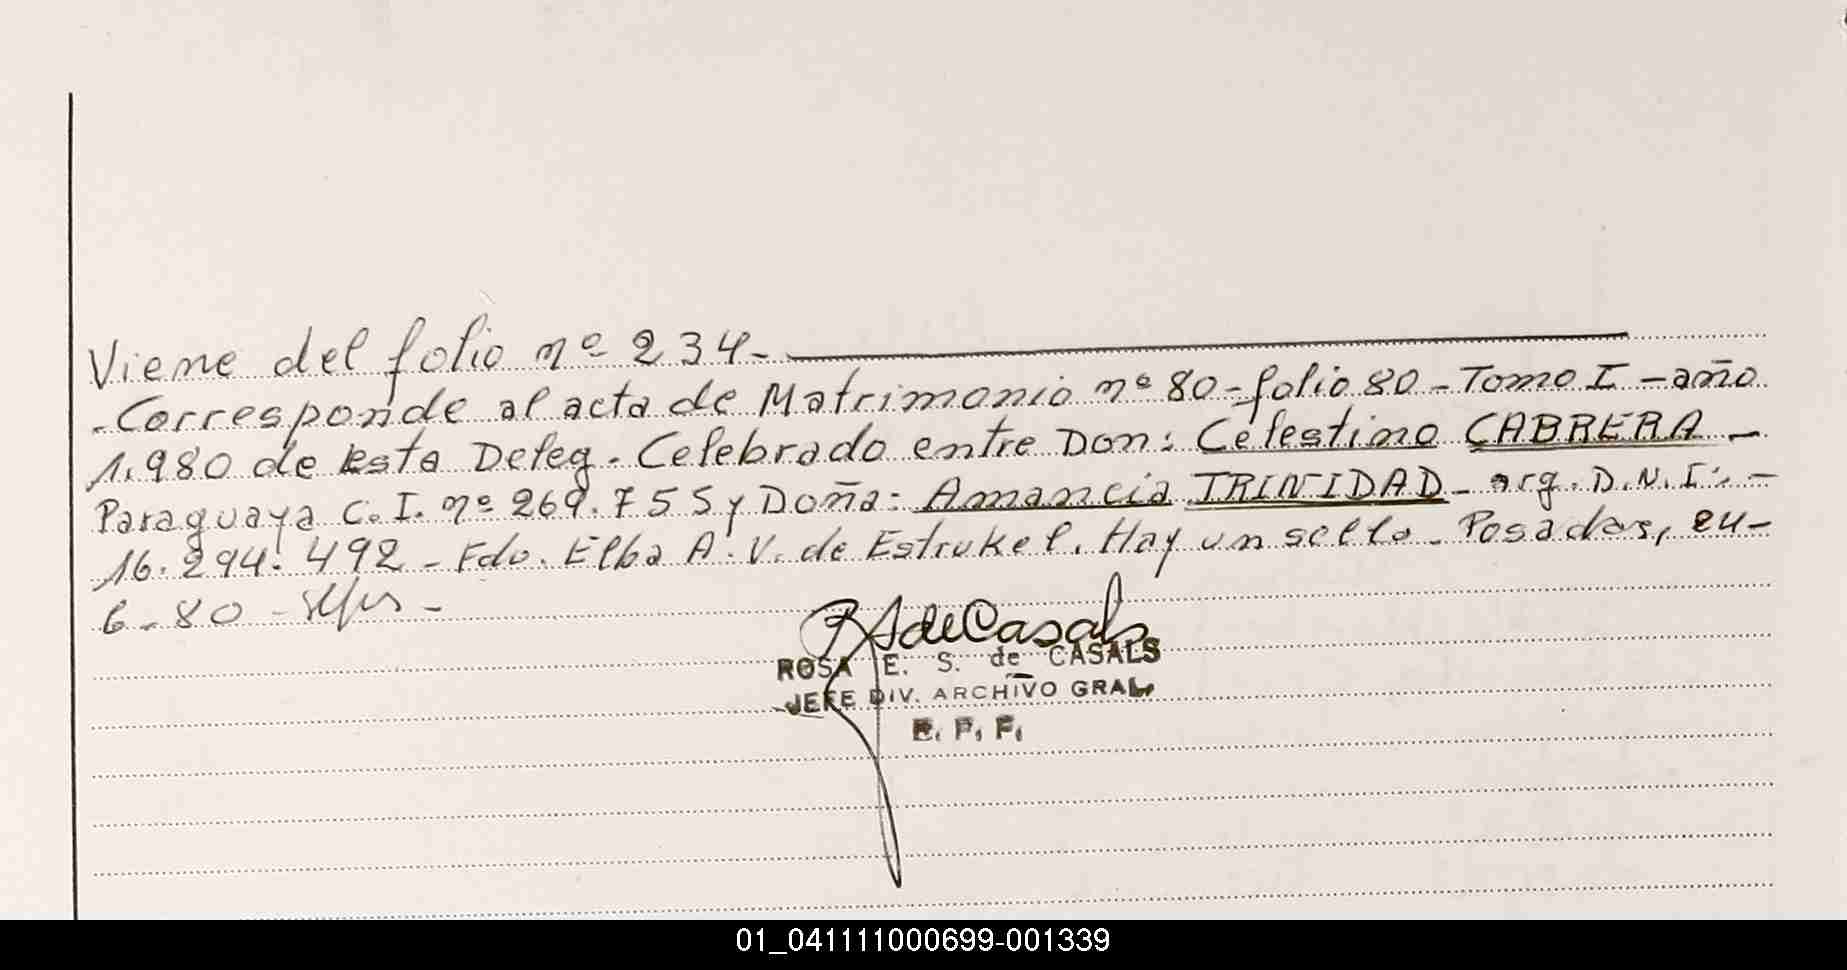 Viene del folio nº 234-
-Corresponde al acta de Matrimonio nº 80-folio 80-Tomo I-año
1.980 de esta Deleg. Celebrado entre Don: Celestino CABRERA-
Paraguaya C.I. nº 269.755 y Doña: Amancia TRINIDAD- arg. D.N.I:-
16.294.492- Fdo. Elba A. V. de Estrukel. Hay un sello- Posadas, 24-
6-80-
ROSA E. S. de CASALS
JEFE DIV. ARCHIVO GRAL.
01_041111000699-001339